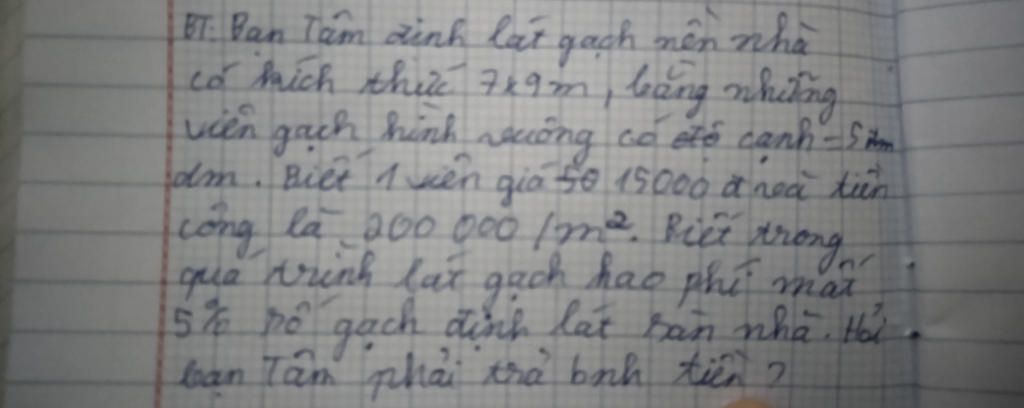 BT. Bạn Tâm định lát gạch nền nhà
có kích thức 7x9m, bằng những
viên gạch hình vuông có cạnh = 5
dm. Biết 1 viên giá 15000 đ và tiền
công là 200 000 /m². Biết trong
quá trình lát gạch hao phí mất
5% số gạch định lát sàn nhà. Hỏi
bạn Tâm phải trả bnh tiền?